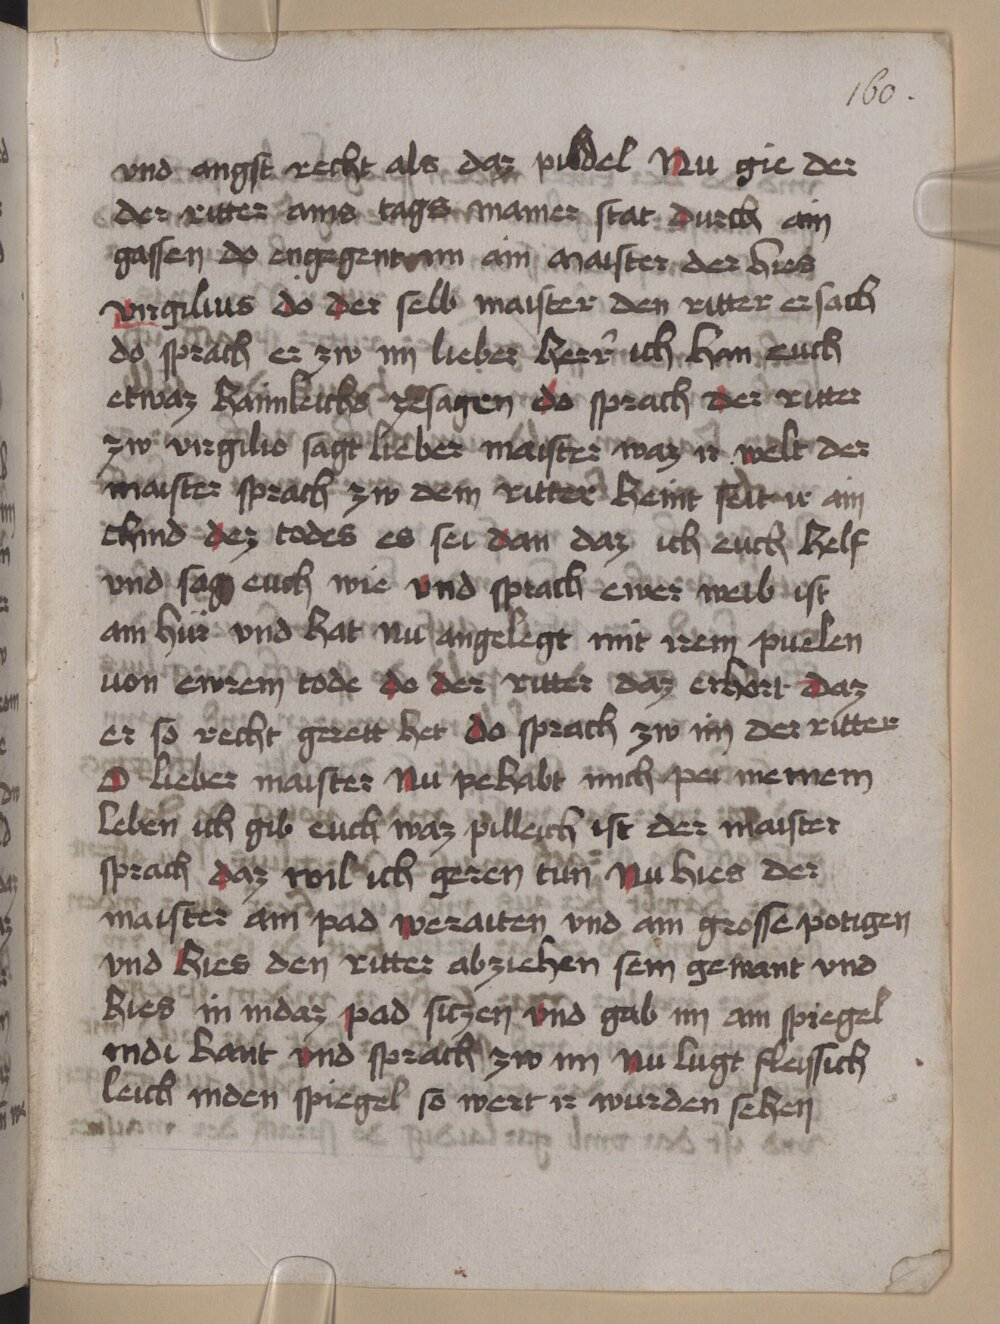 160.
vnd angst recht als daz pildel Nu gie der
der ritter ains tags in ainer stat durch ain
gassen do engegent im ain maister der hies
virgilius do der selb maister den ritter ersach
do sprach er zw im lieber herr ich han euch
etwaz haimleichs zesagen do sprach der ritter
zw virgilio sagt lieber maister waz ir welt der
maister sprach zw dem ritter heint seit ir ain
chind dez todes es sei dan daz ich euch helf
vnd sag euch wie vnd sprach ewer weib ist
ain hůr vnd hat nu angelegt mit irem puelen
von ewrem tode do der ritter daz erhort daz
er so recht gerett het do sprach zw im der ritter
O lieber maister Nu pehabt mich pei meinem
leben ich gib euch waz pilleich ist der maister
sprach daz wil ich geren tun Nu hies der
maister ain pad weraiten vnd ain grosse potigen
vnd hies den ritter abziehen sein gewant vnd
hies in indaz pad siczen vnd gab im ain spiegel
indi hant vnd sprach zw im Nu lugt fleissich
leich inden spiegel so wert ir wunden sehen